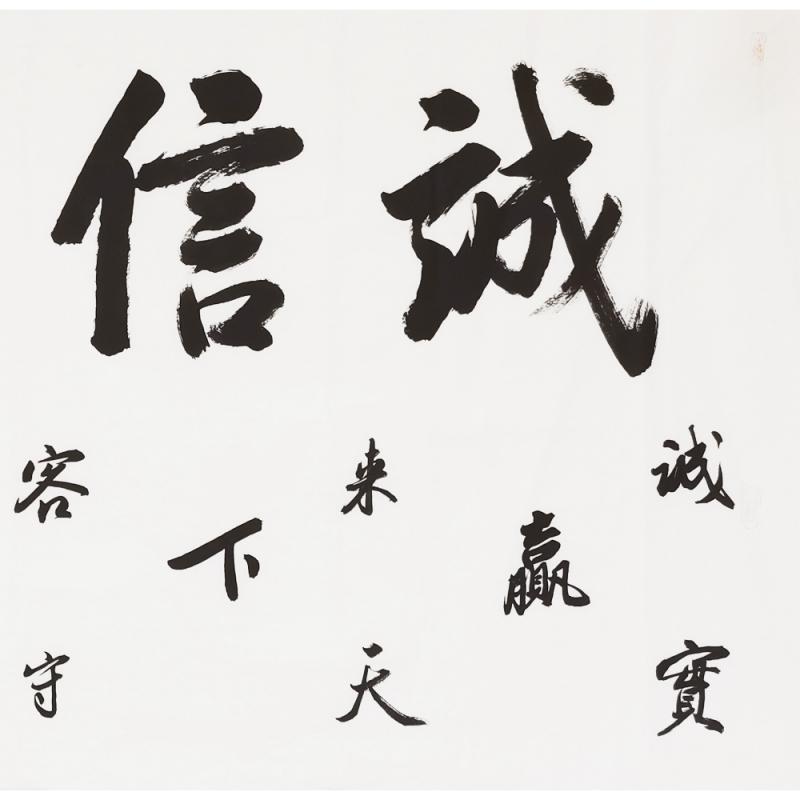 誠信
誠實
贏
来天
下
客守